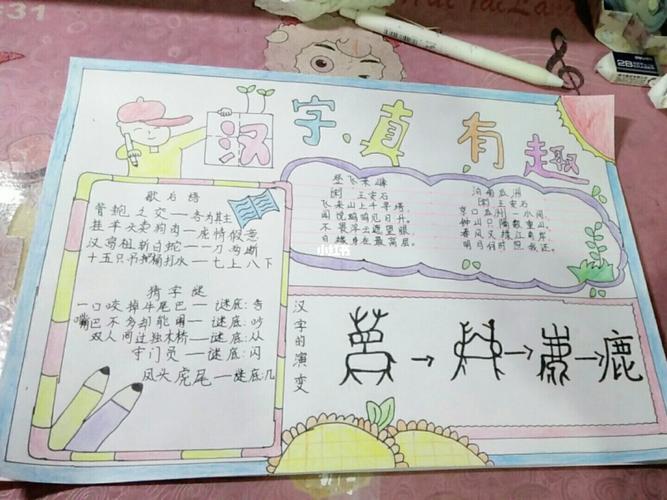 汉字真有趣
歇后语
管鲍之交——各为其主
挂羊头卖狗肉——虚情假意
汉高祖斩白蛇——一刀两断
十五只吊把桶打水——七上八下
猜字谜
一口咬掉牛尾巴——谜底:告
嘴巴不多却能闹——谜底:吵
双人同过独木桥——谜底:从
守门员——谜底:闪
凤头虎尾——谜底:几
登飞来峰
[宋] 王安石
飞来山上千寻塔,
闻说鸡鸣见日升。
不畏浮云遮望眼,
自缘身在最高层。
泊船瓜洲
[宋] 王安石
京口瓜洲一水间,
钟山只隔数重山。
春风又绿江南岸,
明月何时照我还。
小红书
汉字的演变
鹿
31
28